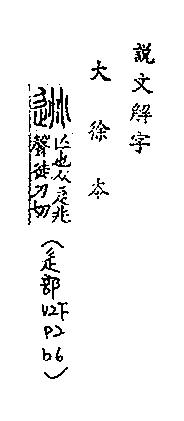 說文解字
大徐本
逃
亡也从辵兆
聲徒刀切
(辵部V2下P2b6)